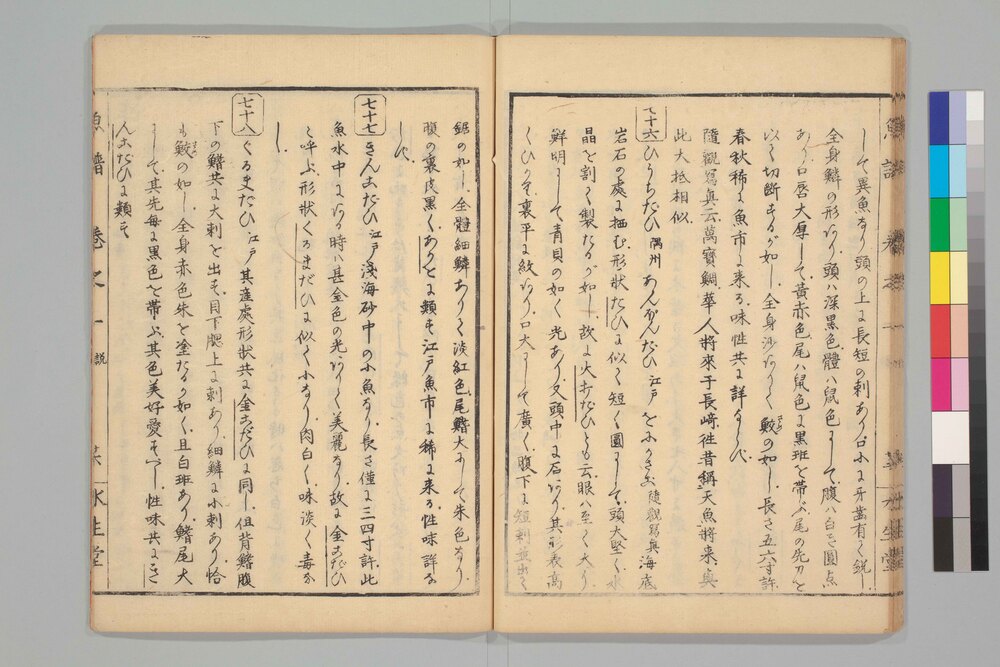 して異魚なり頭の上に長短の刺あり口小に牙歯有て鋭
全身鱗の形なり頭ハ深黒色體ハ鼠色にして腹ハ白き圓点
あり口唇大厚して黄赤色尾ハ鼠色に黒斑を帯ぶ尾の先刀を
以て切断するが如し全身沙ありて鮫の如し長さ五六寸許
春秋稀に魚市に来る味性共に詳ならず
随觀寫真云萬寶鯛華人將來于長﨑徃昔稱天魚將来奥
此大抵相似
七十六
ひうちだひ 隅州 あんぽんだひ 江戸 随觀寫真 海底
岩石の處に栖む形状たひに似て短く圓にして頭大堅く水
晶を割て製たるが如し故に火打だひとも云眼ハ至て大なり
鮮明にして青貝の如く光あり又頭中に石あり其形表高
くひくき裏平に紋あり口大にして廣く腹下に短刺並出て
鋸の如し全體細鱗ありて淡紅色尾鰭大にして朱色なり
腹の裏皮黒くあかをに類す江戸魚市に稀に来る性味詳な
らず
七十七
きんこだひ 江戸 淺海砂中の小魚なり長さ僅に三四寸許此
魚水中にある時ハ甚金色の光ありて美麗なり故に金こだひ
と呼ぶ形状くるまだひに似て小なり肉白く味淡く毒な
し
七十八
ぐるまだひ 江戸 其産處形状共に金こだひに同し但背鰭腹
下の鰭共に大刺を出す目下腮上に刺あり細鱗に小刺あり恰
も鮫の如し全身赤色朱を塗たるが如く且白斑あり鰭尾大
にして其先毎に黒色を帯ぶ其色美好愛すべし性味共にき
んこだひに類す
魚譜 巻之一 説
水生堂